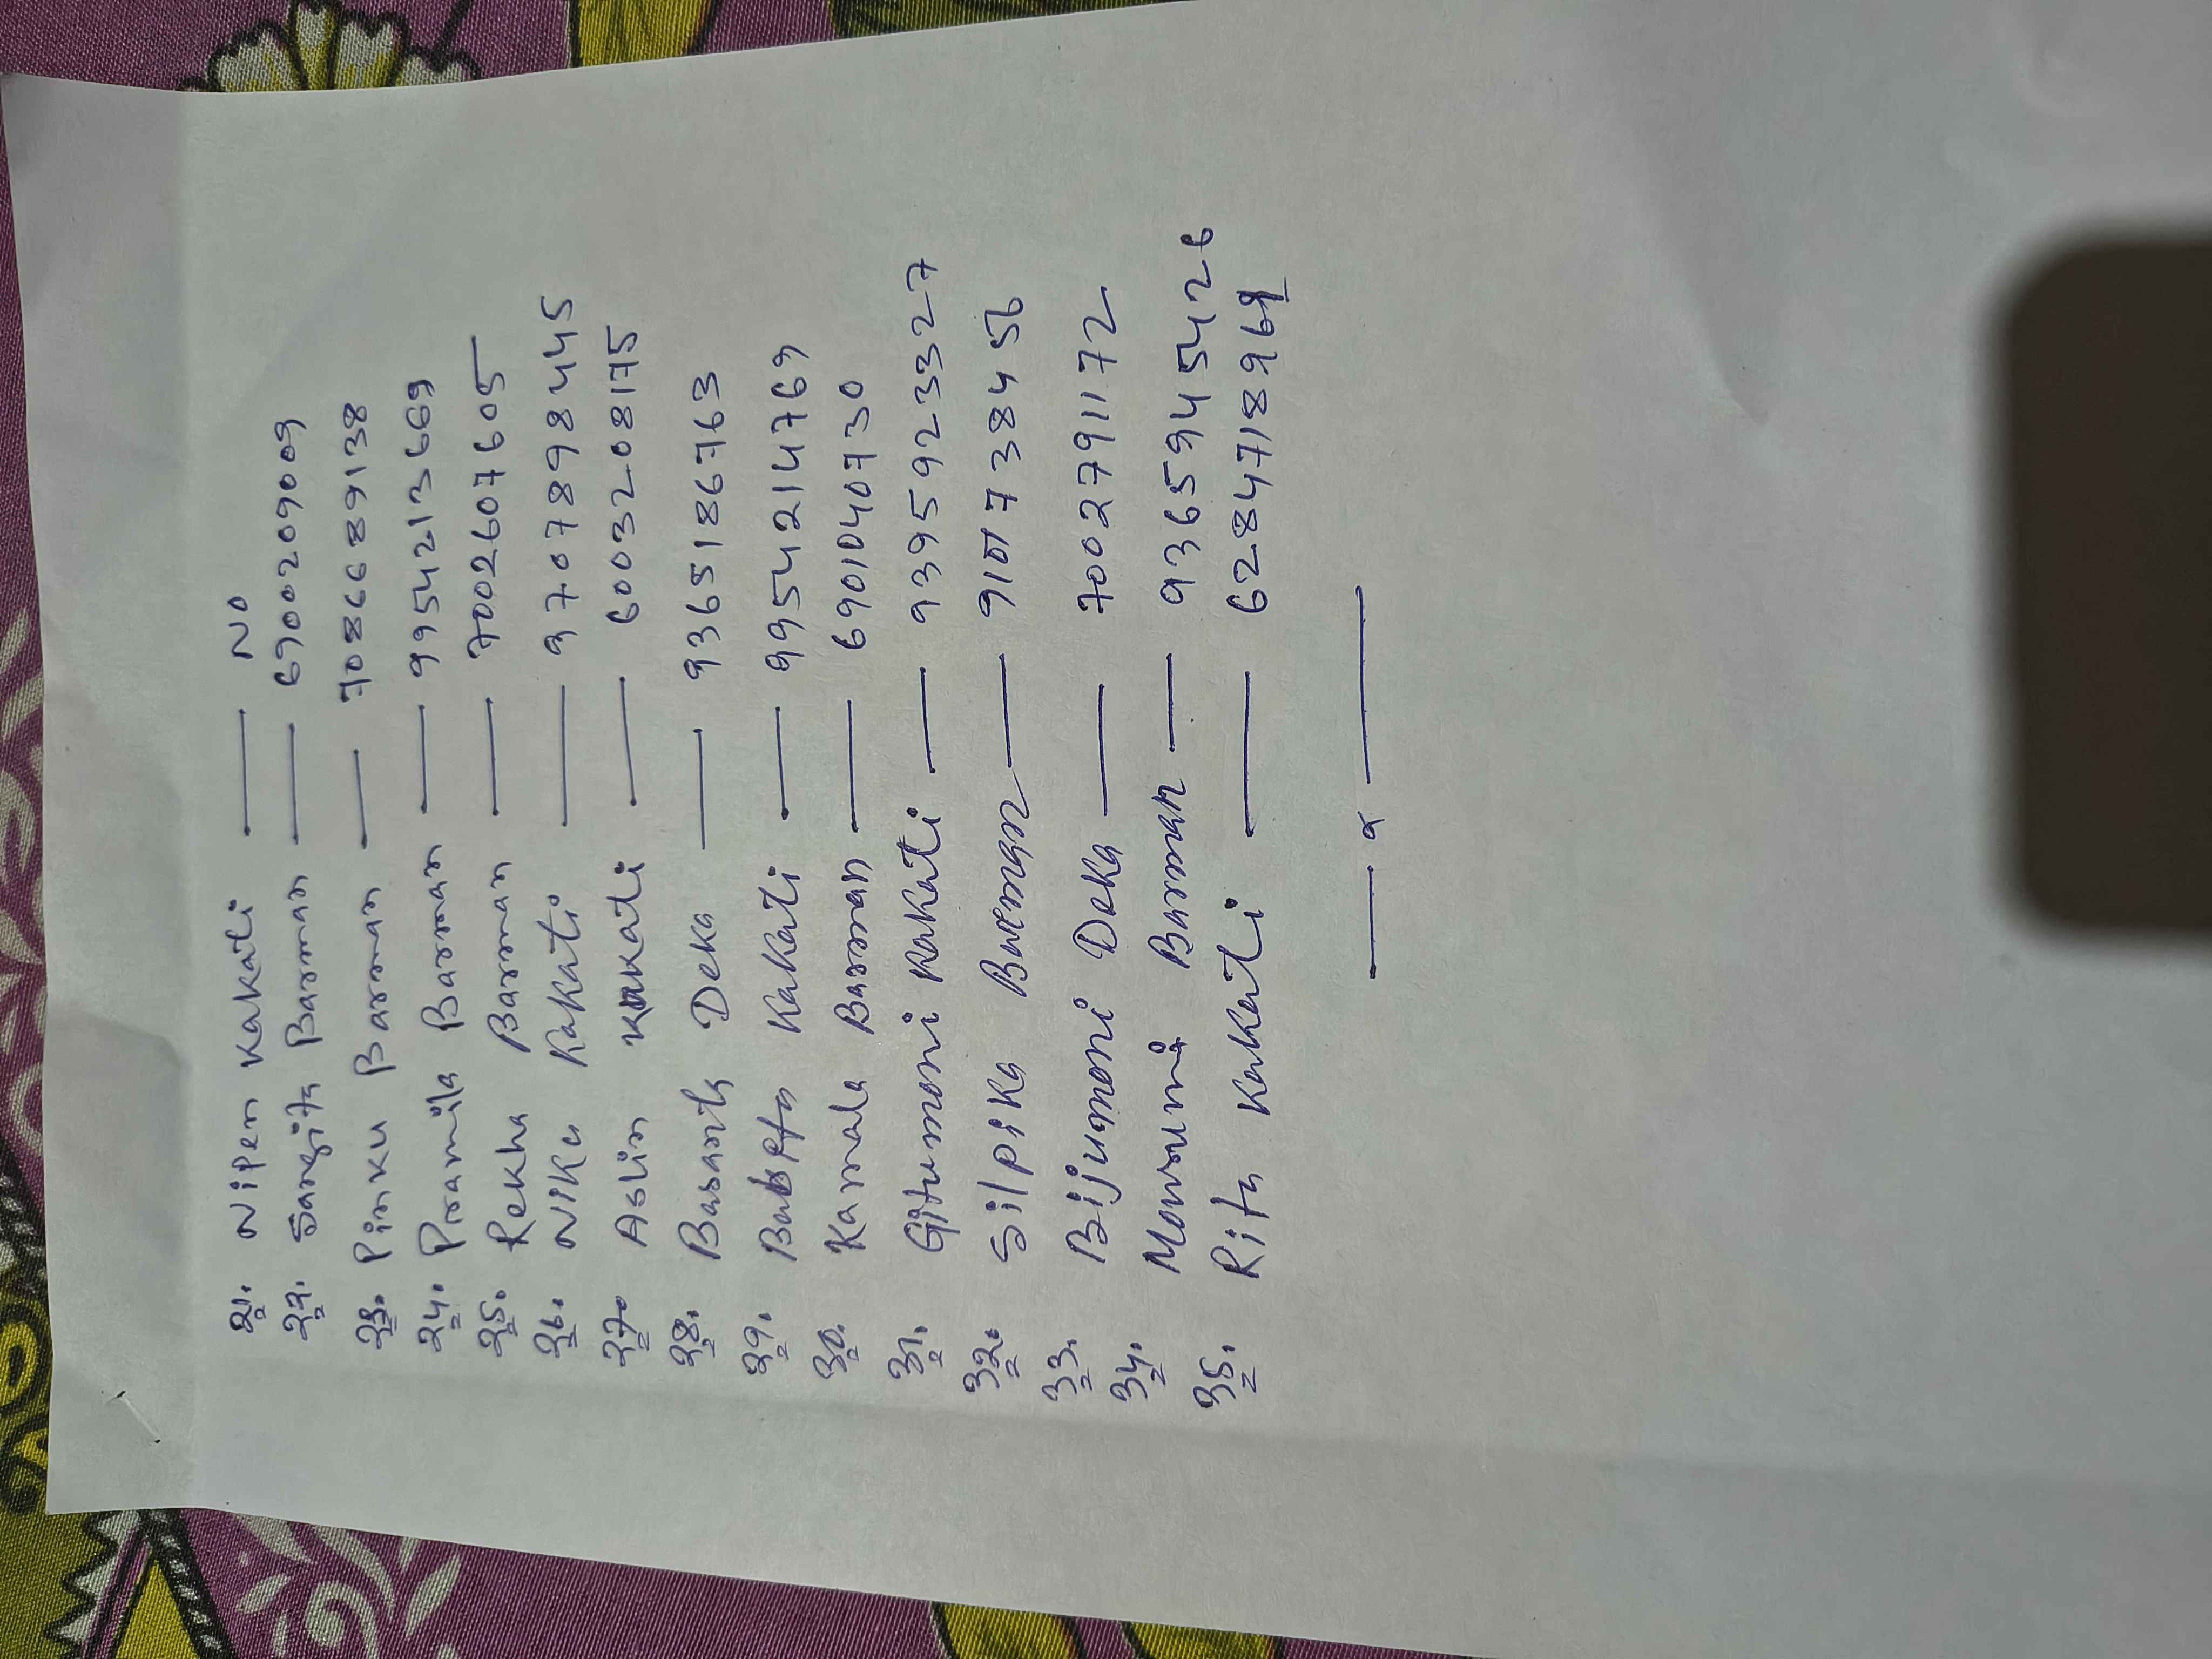 21. Nipen Kakati — No
22. Sangita Barman — 6900209009
23. Pinku Barman — 7086689138
24. Pramila Barman — 9954213669
25. Rekha Barman — 7002607605
26. Niku Kakati — 9707898445
27. Aslin Kakati — 6003208175
28. Basanta Deka — 9365186763
29. Kakati — 9954214769
30. Kamala Barman — 6901040730
31. Gitumoni Kakati — 9395923327
32. Silpika Barman — 9101738456
33. Bijumoni Deka — 7002791172
34. Barman — 9365945426
35. Rita Kakati —